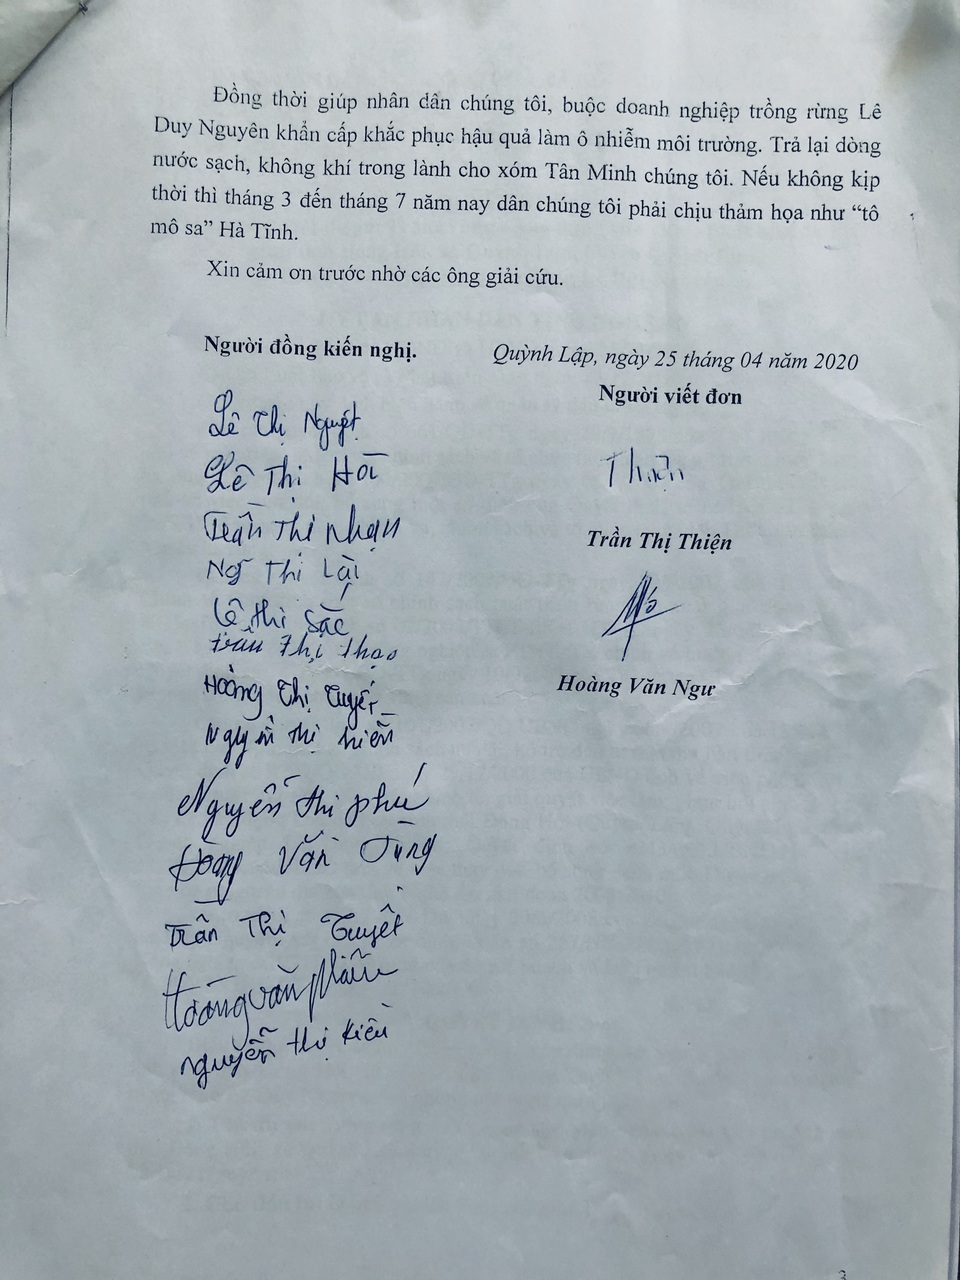 Đồng thời giúp nhân dân chúng tôi, buộc doanh nghiệp trồng rừng Lê
Duy Nguyên khẩn cấp khắc phục hậu quả làm ô nhiễm môi trường. Trả lại dòng
nước sạch, không khí trong lành cho xóm Tân Minh chúng tôi. Nếu không kịp
thời thì tháng 3 đến tháng 7 năm nay dân chúng tôi phải chịu thảm họa như “tô
mô sa” Hà Tĩnh.
Xin cảm ơn trước nhờ các ông giải cứu.
Người đồng kiến nghị.
Lê Thị Nguyệt
Lê Thị Hà
Trần Thị Nhạn
Ngô Thị Lài
Lê thì Sắc
Trần Thị Thao
Hoàng Thị Tuyết
Nguyễn thị hiền
Nguyễn thị phú
Hoàng Văn Tùng
Trần Thị Tuyết
Hoàng văn
nguyễn thị Kiều
Quỳnh Lập, ngày 25 tháng 04 năm 2020
Người viết đơn
Thiện
Trần Thị Thiện
Hoàng Văn Ngư
3